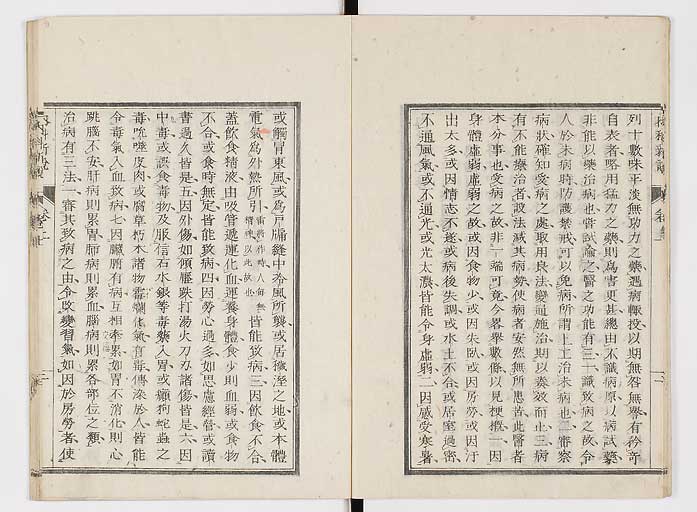 列十數味平淡無功力之藥遇病輙投以期無咎無譽有矜奇
自表者略用猛力之藥則爲害更甚總由不識病原以病試藥
非能以藥治病也嘗試論之醫之功能有三一識致病之故令
人於未病時防護禁戒可以免病所謂上工治未病也二審察
病狀確知受病之處取用良法變通施治期以奏效而止三病
有不能療治者設法減其病勢使病者安然無所患苦此醫者
本分事也受病之故非一端可竟今畧舉數條以見梗概一因
身體虛弱虛弱之故或因食物少或因失臥或因房勞或因汗
出太多或因情志不遂或病後失調或水土不合或居室過密
不通風氣或不通光或光太濃皆能令身虛弱二因感受寒暑
或觸冒東風或爲戸牖縫中冷風所襲或居濕溼之地或本體
電氣爲外熱所引雷將作時人每無情味以此故也皆能致病三因飲食不合
蓋飲食精液由吸管遞運化血運養身體食少則血弱或食物
不合或食時無定皆能致病四因勞心過多如思慮經營或讀
書過久皆是五因外傷如傾壓跌打湯火刀刃諸傷皆是六因
中毒或誤食毒物及服信石水銀等毒藥入胃或癲狗蛇蟲之
毒咬噬皮肉或腐草朽木諸物毒爛㑹氣有毒傳染於人皆能
令毒氣入血致病七因臟腑有病互相牽累如胃不消化則心
跳腦不安肝病則累胃肺病則累血腦病則累各部位之類
治病有三法一審其致病之由令改變習氣如因於房勞者使